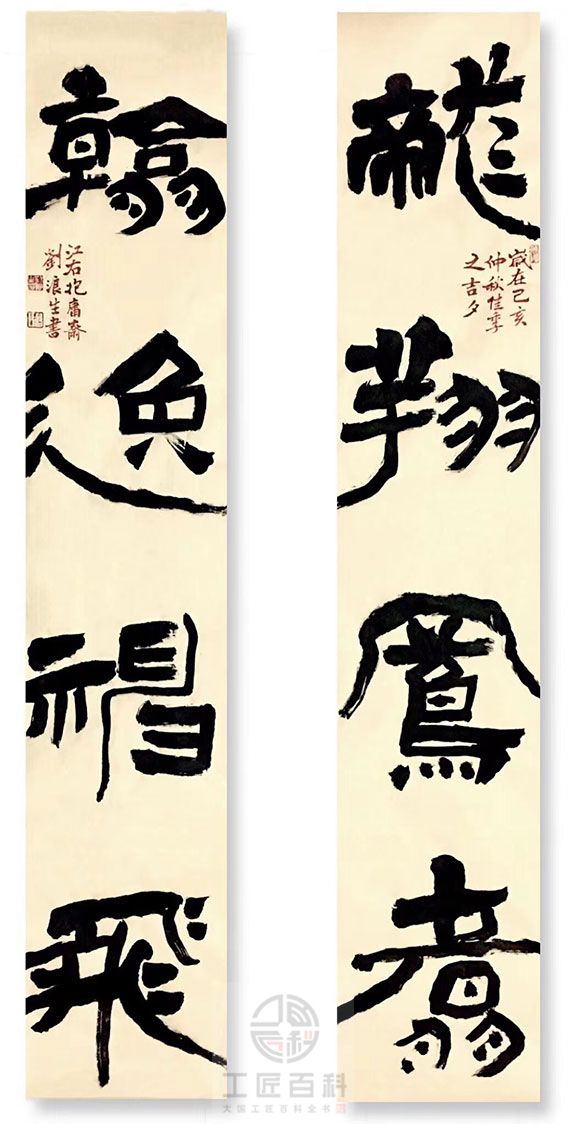 龍翔鳳翥
歲在己亥
仲秋佳季
之吉夕
翰逸神飛
江右抱庸齋
劉浪生書
工匠百科
大国工匠百科全书